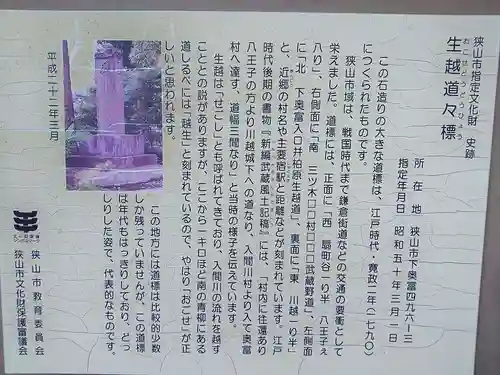 狭山市指定文化財　史跡
生越道々標
おごせどうどうひょう
所在地　狭山市下奥富四九六ー三
指定年月日　昭和五十年三月一日
この石造りの大きな道標は、江戸時代・寛政二年（一七九〇）
につくられたものです。
狭山市域は、戦国時代まで鎌倉街道などの交通の要衝として
栄えました。道標には、正面に「西　扇町谷一り半　八王子え
八り」、右側面に「南　三ツ木口口村口口口武蔵野道」、左側面
に「北　下奥富入口井柏原生越道」、裏面に「東　川越一り半」
と、近郷の村名や主要宿駅と距離などが刻まれています。江戸
時代後期の書物『新編武蔵風土記稿』には、「村内に往還あり
八王子の方より川越城下への道なり、入間川村より入て奥富
村へ達す、道幅三間なり」と当時の様子を伝えています。
生越は「せごし」とも呼ばれてきており、入間川の流れを越す
こととの説がありますが、ここから一キロほど南の青柳にある
道しるべには「越生」と刻まれているので、やはり「おごせ」が正
しいと思われます。
この地方には道標は比較的少数
しか残っていませんが、この道標
は年代もはっきりしており、どっ
しりした姿で、代表的なものです。
平成二十二年三月
狭山市教育委員会
狭山市文化財保護審議会